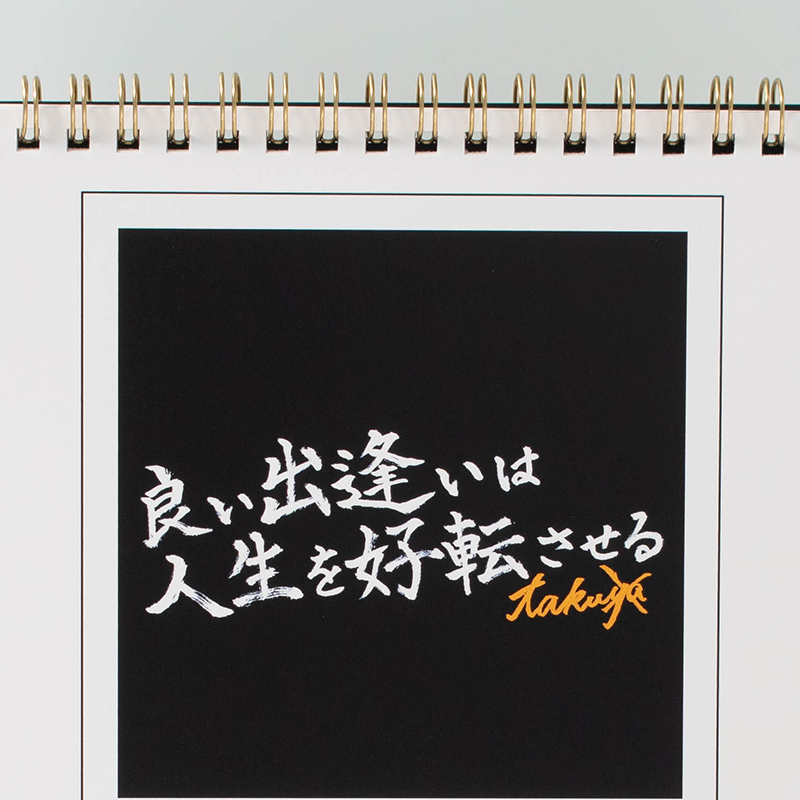 良い出逢いは
人生を好転させる
takuya